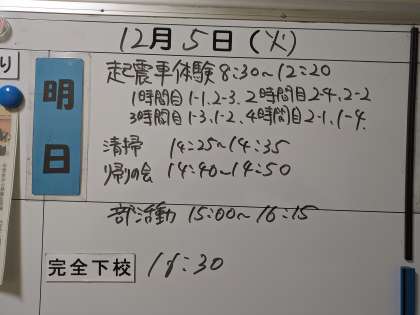 12月5日(火)
り
明日
起震車体験 8:30〜12:20
1時間目1-1,2-3. 2時間目2-4,2-2
3時間目1-3,1-2,4時間目2-1,1-4.
清掃 14:25〜14:35
帰りの会 14:40〜14:50
部活動 15:00〜16:15
完全下校 16:30